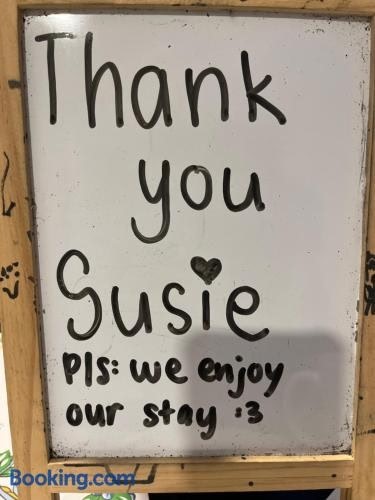 Thank
you
Susie
Pls: we enjoy
our stay :3
Booking.com